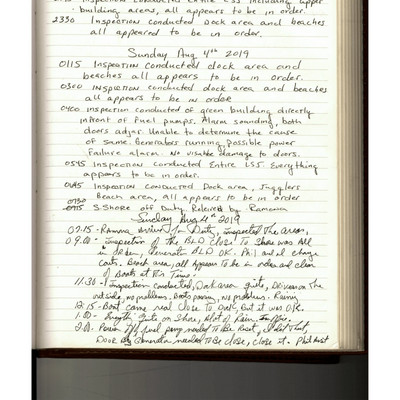 Inspection conducted Entire LSS including upper
building areas, all appears to be in order.
2330 Inspection conducted Dock area and beaches
all appeared to be in order.
Sunday Aug 4th 2019
0115 Inspection conducted dock area and
beaches all appears to be in order.
0300 Inspection conducted dock area and beaches
all appears to be in order
0400 inspection conducted of green building directly
infront of fuel pumps. Alarm sounding, both
doors adjar. Unable to determine the cause
of same. Generators running, possible power
failure alarm. No visable damage to doors.
0545 Inspection conducted Entire LSS. Everything
appears to be in order.
0645 Inspection conducted Dock area, Jugglers
Beach area, all appears to be in order
0730 S.Shore off Duty Releived by Ramona
Sunday Aug 4th 2019
07:15 - Ramona arrived for Duty, inspected the area
9:00 - inspection of the BLD close to Shore was All
in order, Generator BLD OK. Phil change
Beach area, all Appears to be in order and clear
of Boats at this Time.
11:30 - Inspection conducted, Dock area quite, on the
outside, no problems. Boats passing, no problems. Rainy
12:15 - Boat came real close to Dock, But it was OK.
1:00 - quite on Shore, Alot of Rain.
2:00 - Power off, fuel pump needed to be Reset, did that,
Door Generator needed to be close, close it. Phil